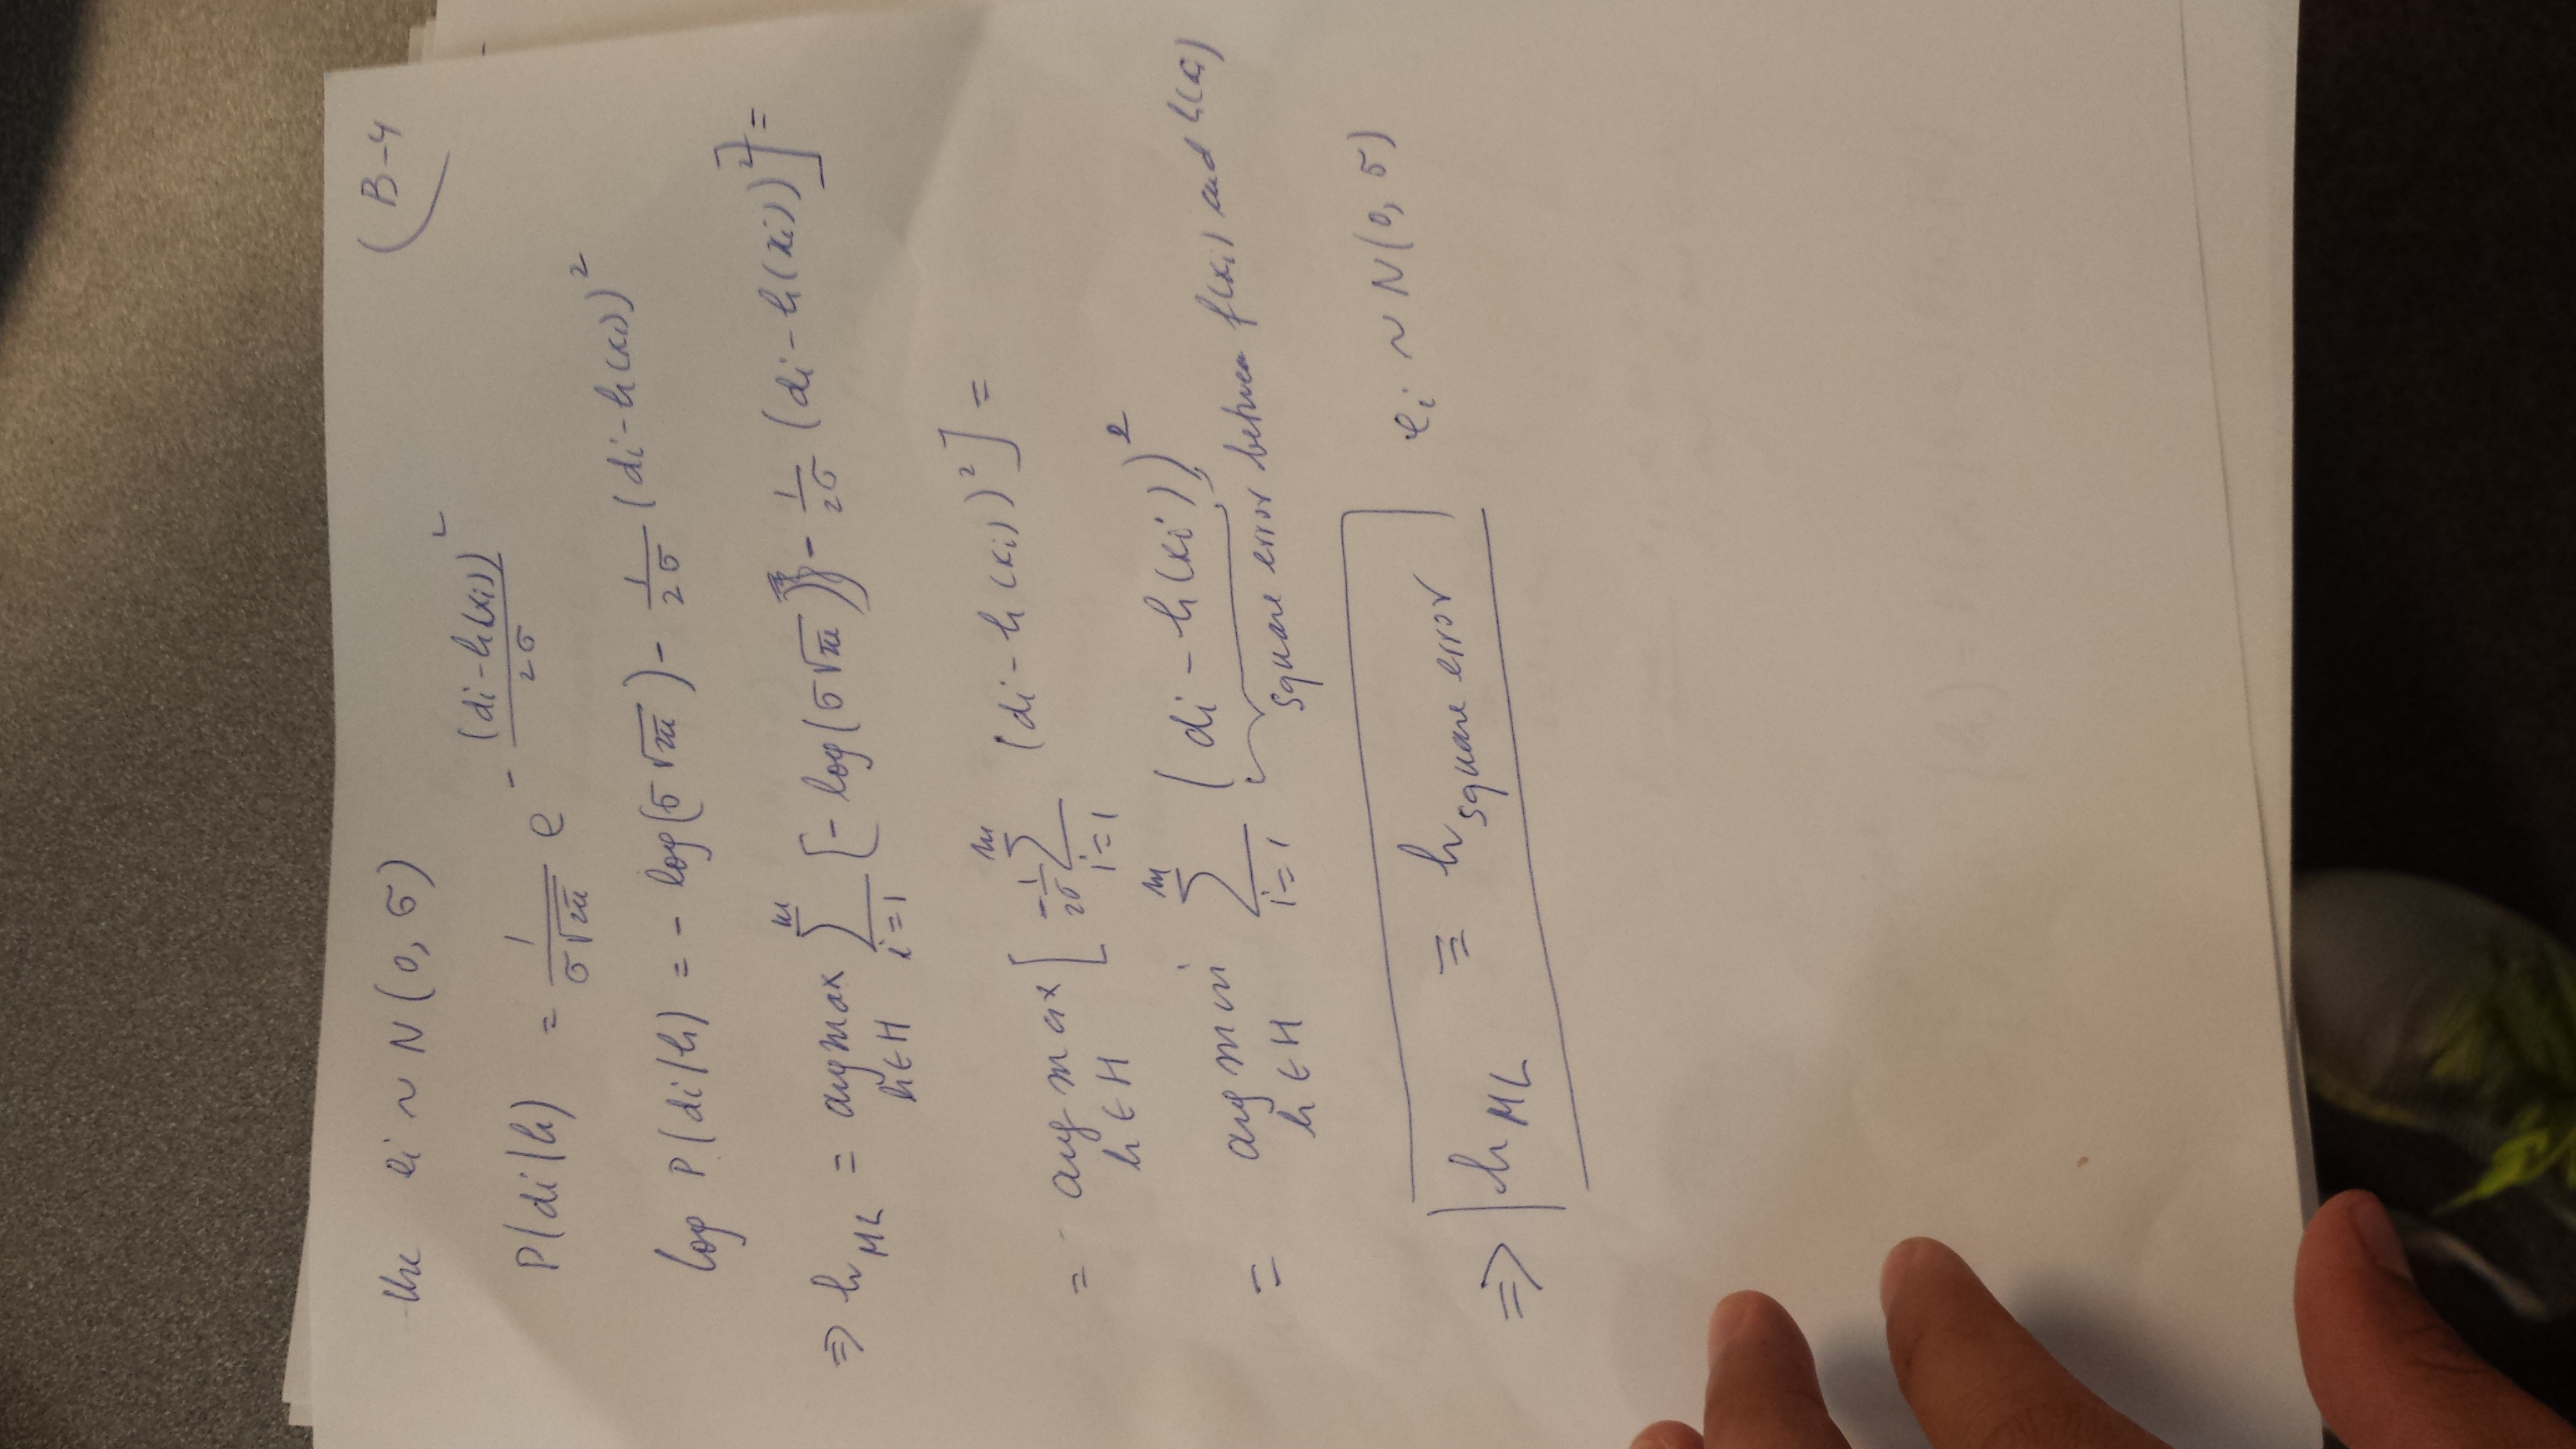 (B-4
the ei ~ N(0, σ)
P(di|h) = 1/(σ√2π) e^-(di-h(xi))²/2σ
log P(di|h) = - log(σ√2π) - 1/2σ (di-h(xi))²
⇒ h_ML = argmax_{h∈H} ∑_{i=1}^{m} [- log(σ√2π) - 1/2σ (di-h(xi))²] =
= argmax_{h∈H} [-1/2σ ∑_{i=1}^{m} (di-h(xi))²] =
= argmin_{h∈H} ∑_{i=1}^{m} (di-h(xi))²
square error between f(xi) and h(xi)
⇒ h_ML ≡ h_square error ei ~ N(0, σ)